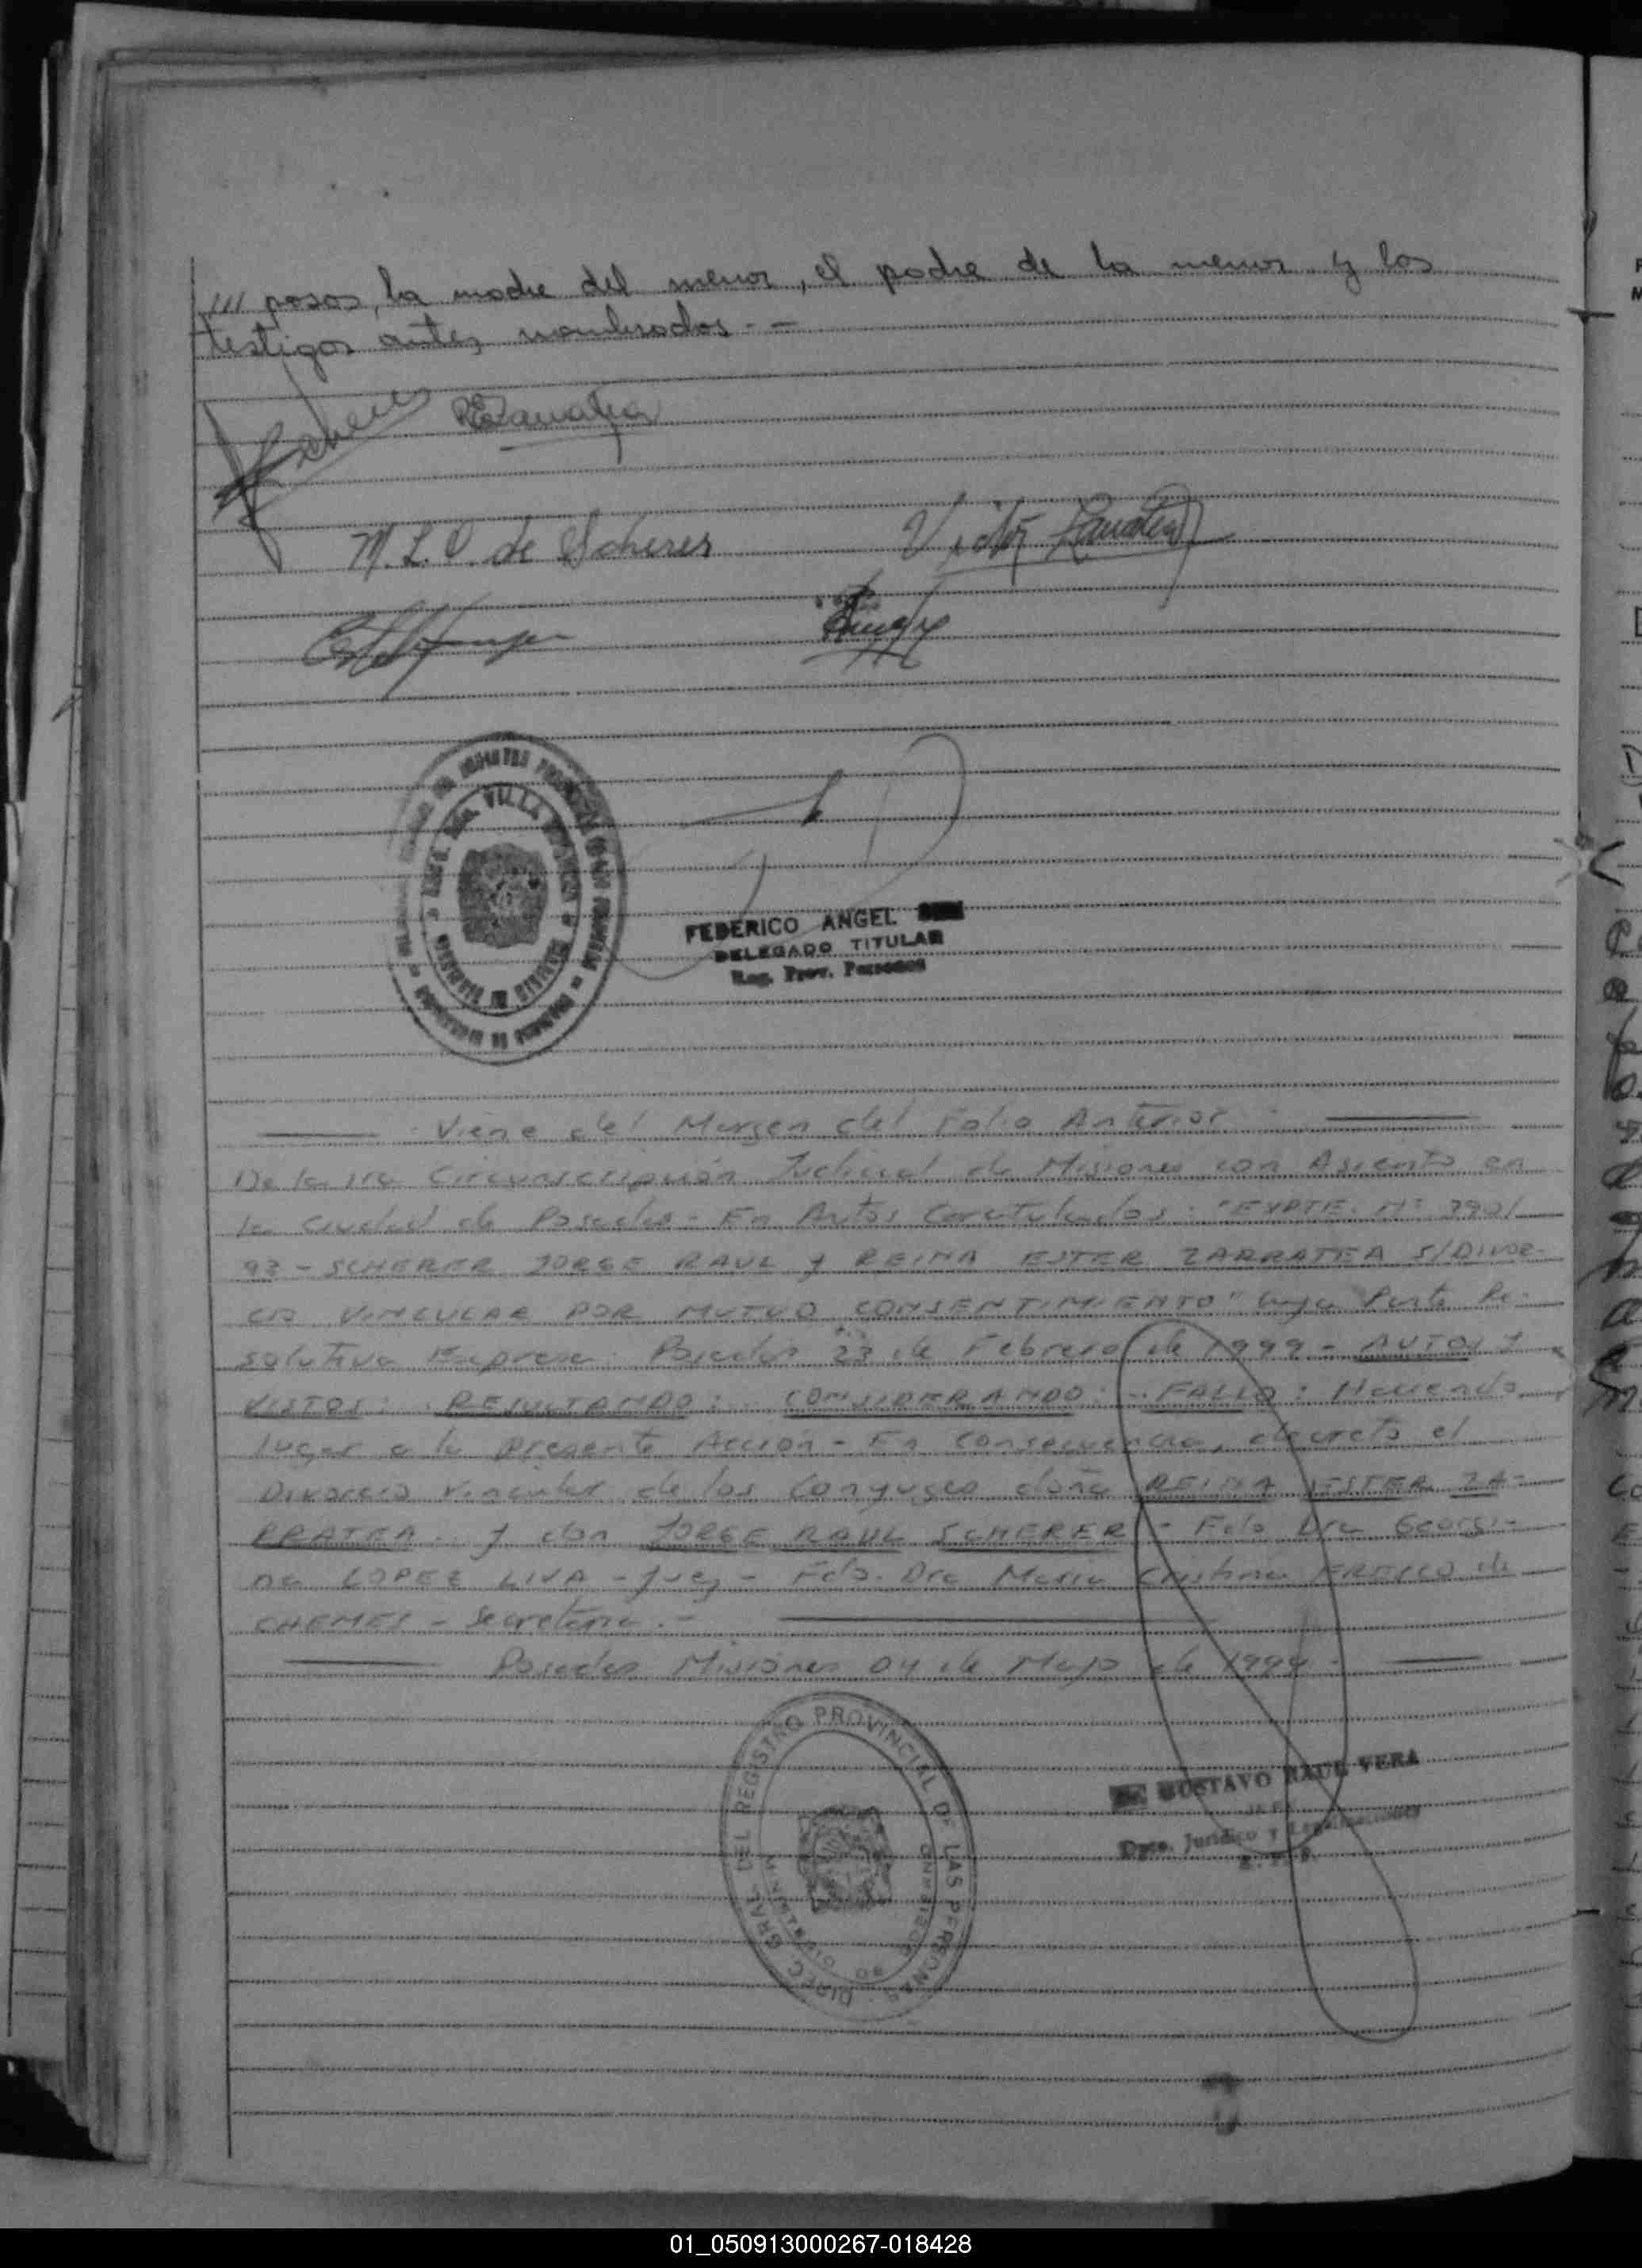 /// posos, la madre del menor, el padre de la menor y los
testigos antes nombrados. -
Scherer
REZarratea
M. L. O. de Scherer
Victor Zarratea
VILLA
FEDERICO ANGEL
DELEGADO TITULAR
Reg. Prov. Personas
Viene del Margen del Folio Anterior
De la 1ra Circunscripción Judicial de Misiones con Asiento en
la Ciudad de Posadas - En Autos Caratulados: "EXPTE. Nº 3901
93 - SCHERER JORGE RAUL y REINA ESTER ZARRATEA S/DIVOR-
CIO VINCULAR POR MUTUO CONSENTIMIENTO" cuya Parte Re-
solutiva Expresa: Posadas 23 de Febrero de 1999 - AUTOS Y
VISTOS: RESULTANDO: CONSIDERANDO: - FALLO: Haciendo
lugar a la presente Acción - En consecuencia, decreto el
Divorcio Vincular de los Conyuges doña REINA ESTER ZA-
RRATEA y don JORGE RAUL SCHERER - Fdo Dra Georgi-
na LOPEZ LIVA - Juez - Fdo. Dra Maria Cristina FRESCO de
CHEMES - Secretaria. -
Posadas Misiones 04 de Mayo de 1999 -
DIREC. GRAL. DEL REGISTRO PROVINCIAL DE LAS PERSONAS
Dr. GUSTAVO RAUL VERA
JEFE
Dpto. Jurídico y Legalizaciones
R. P. P.
01_050913000267-018428